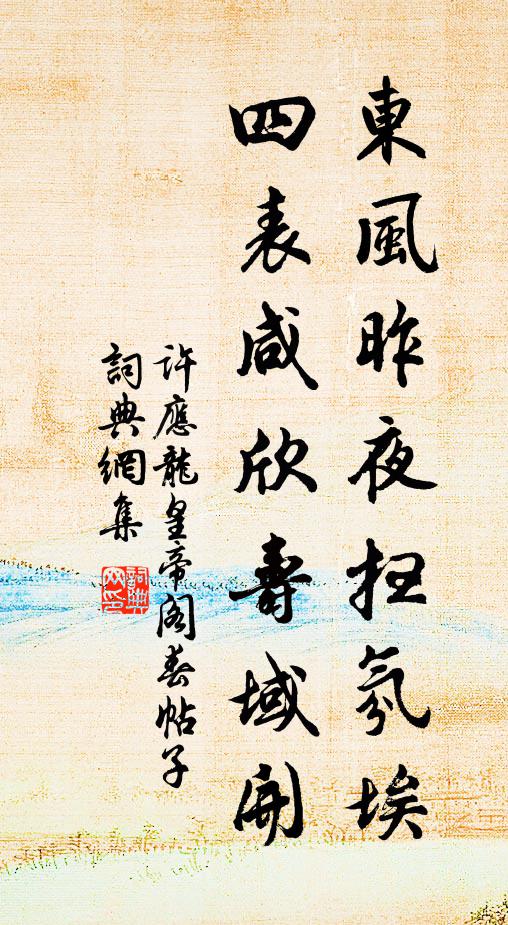 東風昨夜扫氛埃
四表咸欣壽域開
許應龍皇帝閣春帖子
詞典網集
詞典